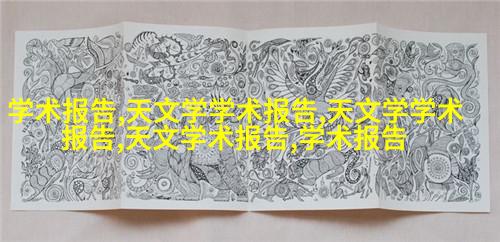 学术报告,天文学学术报告,天文学学术
报告,天文学术报告,学术报告